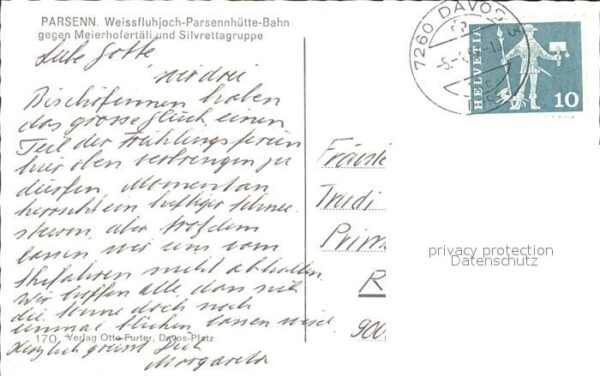 PARSENN. Weissfluhjoch-Parsennhütte-Bahn
gegen Meierhofertäli und Silvrettagruppe
Liebe Gotte
wir drei
Bischoferinnen haben
das grosse Glück, einen
Teil der Frühlingsferien
hier oben verbringen zu
dürfen. Momentan
herrscht ein heftiger Schnee-
sturm, aber trotzdem
lassen wir uns vom
Skifahren nicht abhalten.
Wir hoffen alle, dass sich
die Sonne doch noch
einmal blicken lassen wird.
Herzlich grüsst Dich
Margareta
170. Verlag Otto Furter, Davos-Platz
7260 DAVOS 3
HELVETIA
10
Fräulein
Trudi
Prim
R
900
privacy protection
Datenschutz